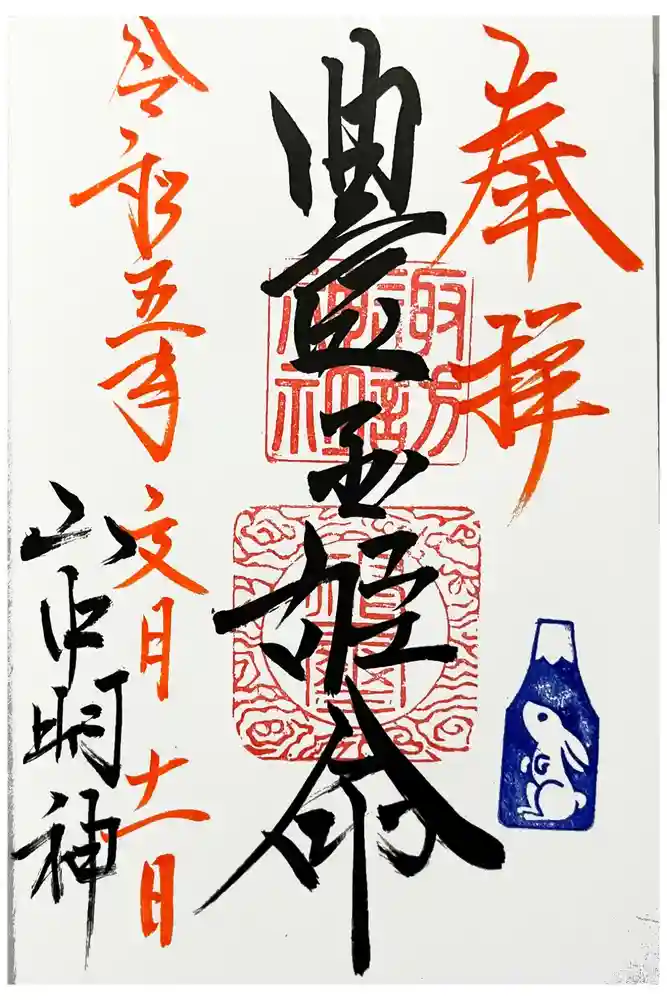 奉拝
諏訪神社
豊玉姫命
令和五年文月十一日
山中明神